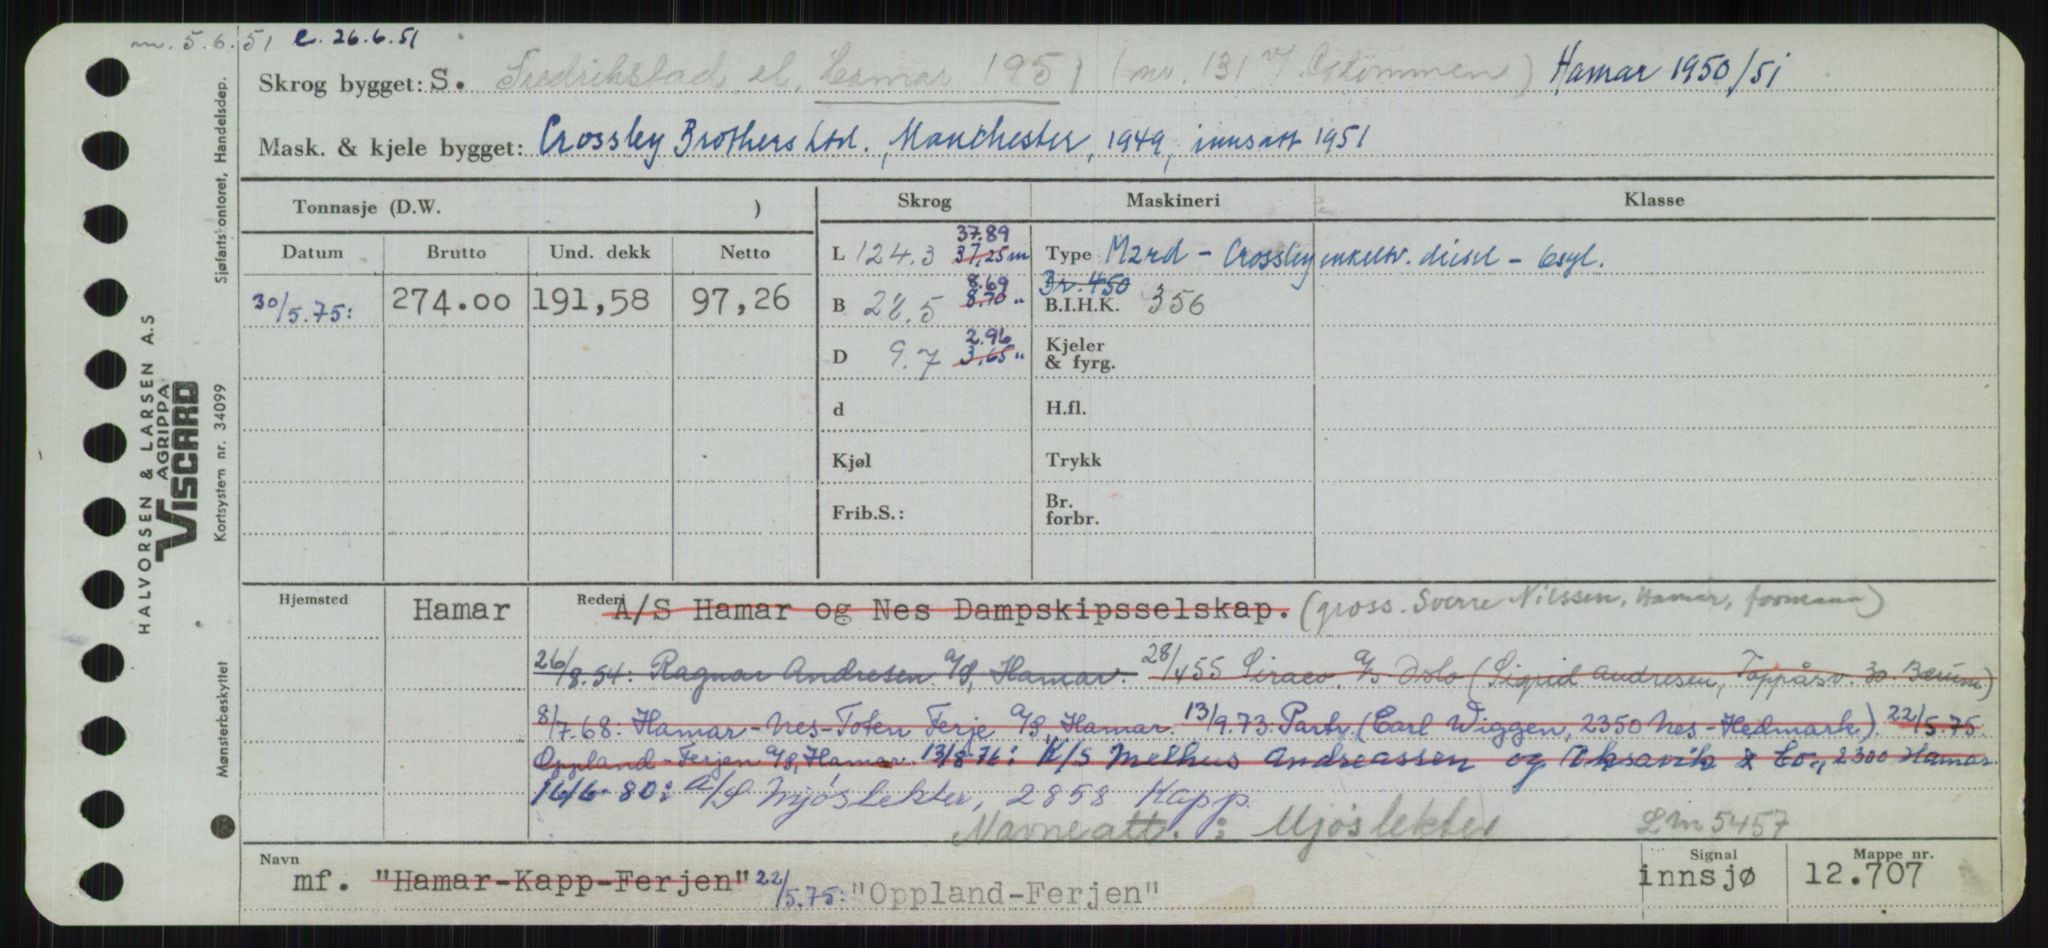 m. 5.6.51 e. 26.6.51
Skrog bygget: S. Fredrikstad el. Hamar 1951 (nr. 131 Glommen) Hamar 1950/51
Mask. & kjele bygget: Crossley Brothers Ltd., Manchester, 1949, innsatt 1951
Tonnasje (D.W. ) Skrog Maskineri Klasse
Datum Brutto Und. dekk Netto
L 124.3 37.89 37,25 m Type M2rd - Crossley enkeltv. diesel - 6syl.
30/5.75: 274.00 191,58 97,26
B 28.5 8.69 8.70 " Br. 450 B.I.H.K. 356
D 9.7 2.96 3,65 " Kjeler & fyrg.
d H.fl.
Kjøl Trykk
Frib.S.: Br. forbr.
Hjemsted Hamar Rederi A/S Hamar og Nes Dampskipsselskap. (gross. Sverre Nilssen, Hamar, formann)
26/8.54: Ragnar Andresen A/S, Hamar. 28/4 55 Siraco A/S Oslo (Sigrid Andresen, Toppåsv. 30. Bærum)
8/7.68: Hamar-Nes-Toten Ferje A/S, Hamar. 13/9.73. Partr. (Earl Wiggen, 2350 Nes-Hedmark). 22/5.75.
Oppland-Ferjen A/S, Hamar. 13/8 76: K/S Melhus Andreassen og Oksavik & Co., 2300 Hamar.
16/6 80: A/S Mjøslekter, 2858 Kapp.
Navneatt. : Mjøslekter Lm 5457
Navn mf. "Hamar-Kapp-Ferjen" 22/5.75: "Oppland-Ferjen" Signal innsjø Mappe nr. 12.707
HALVORSEN & LARSEN A.S
AGRIPPA
VISCARD
Mønsterbeskyttet Kortsystem nr. 34099 Sjøfartskontoret, Handelsdep.